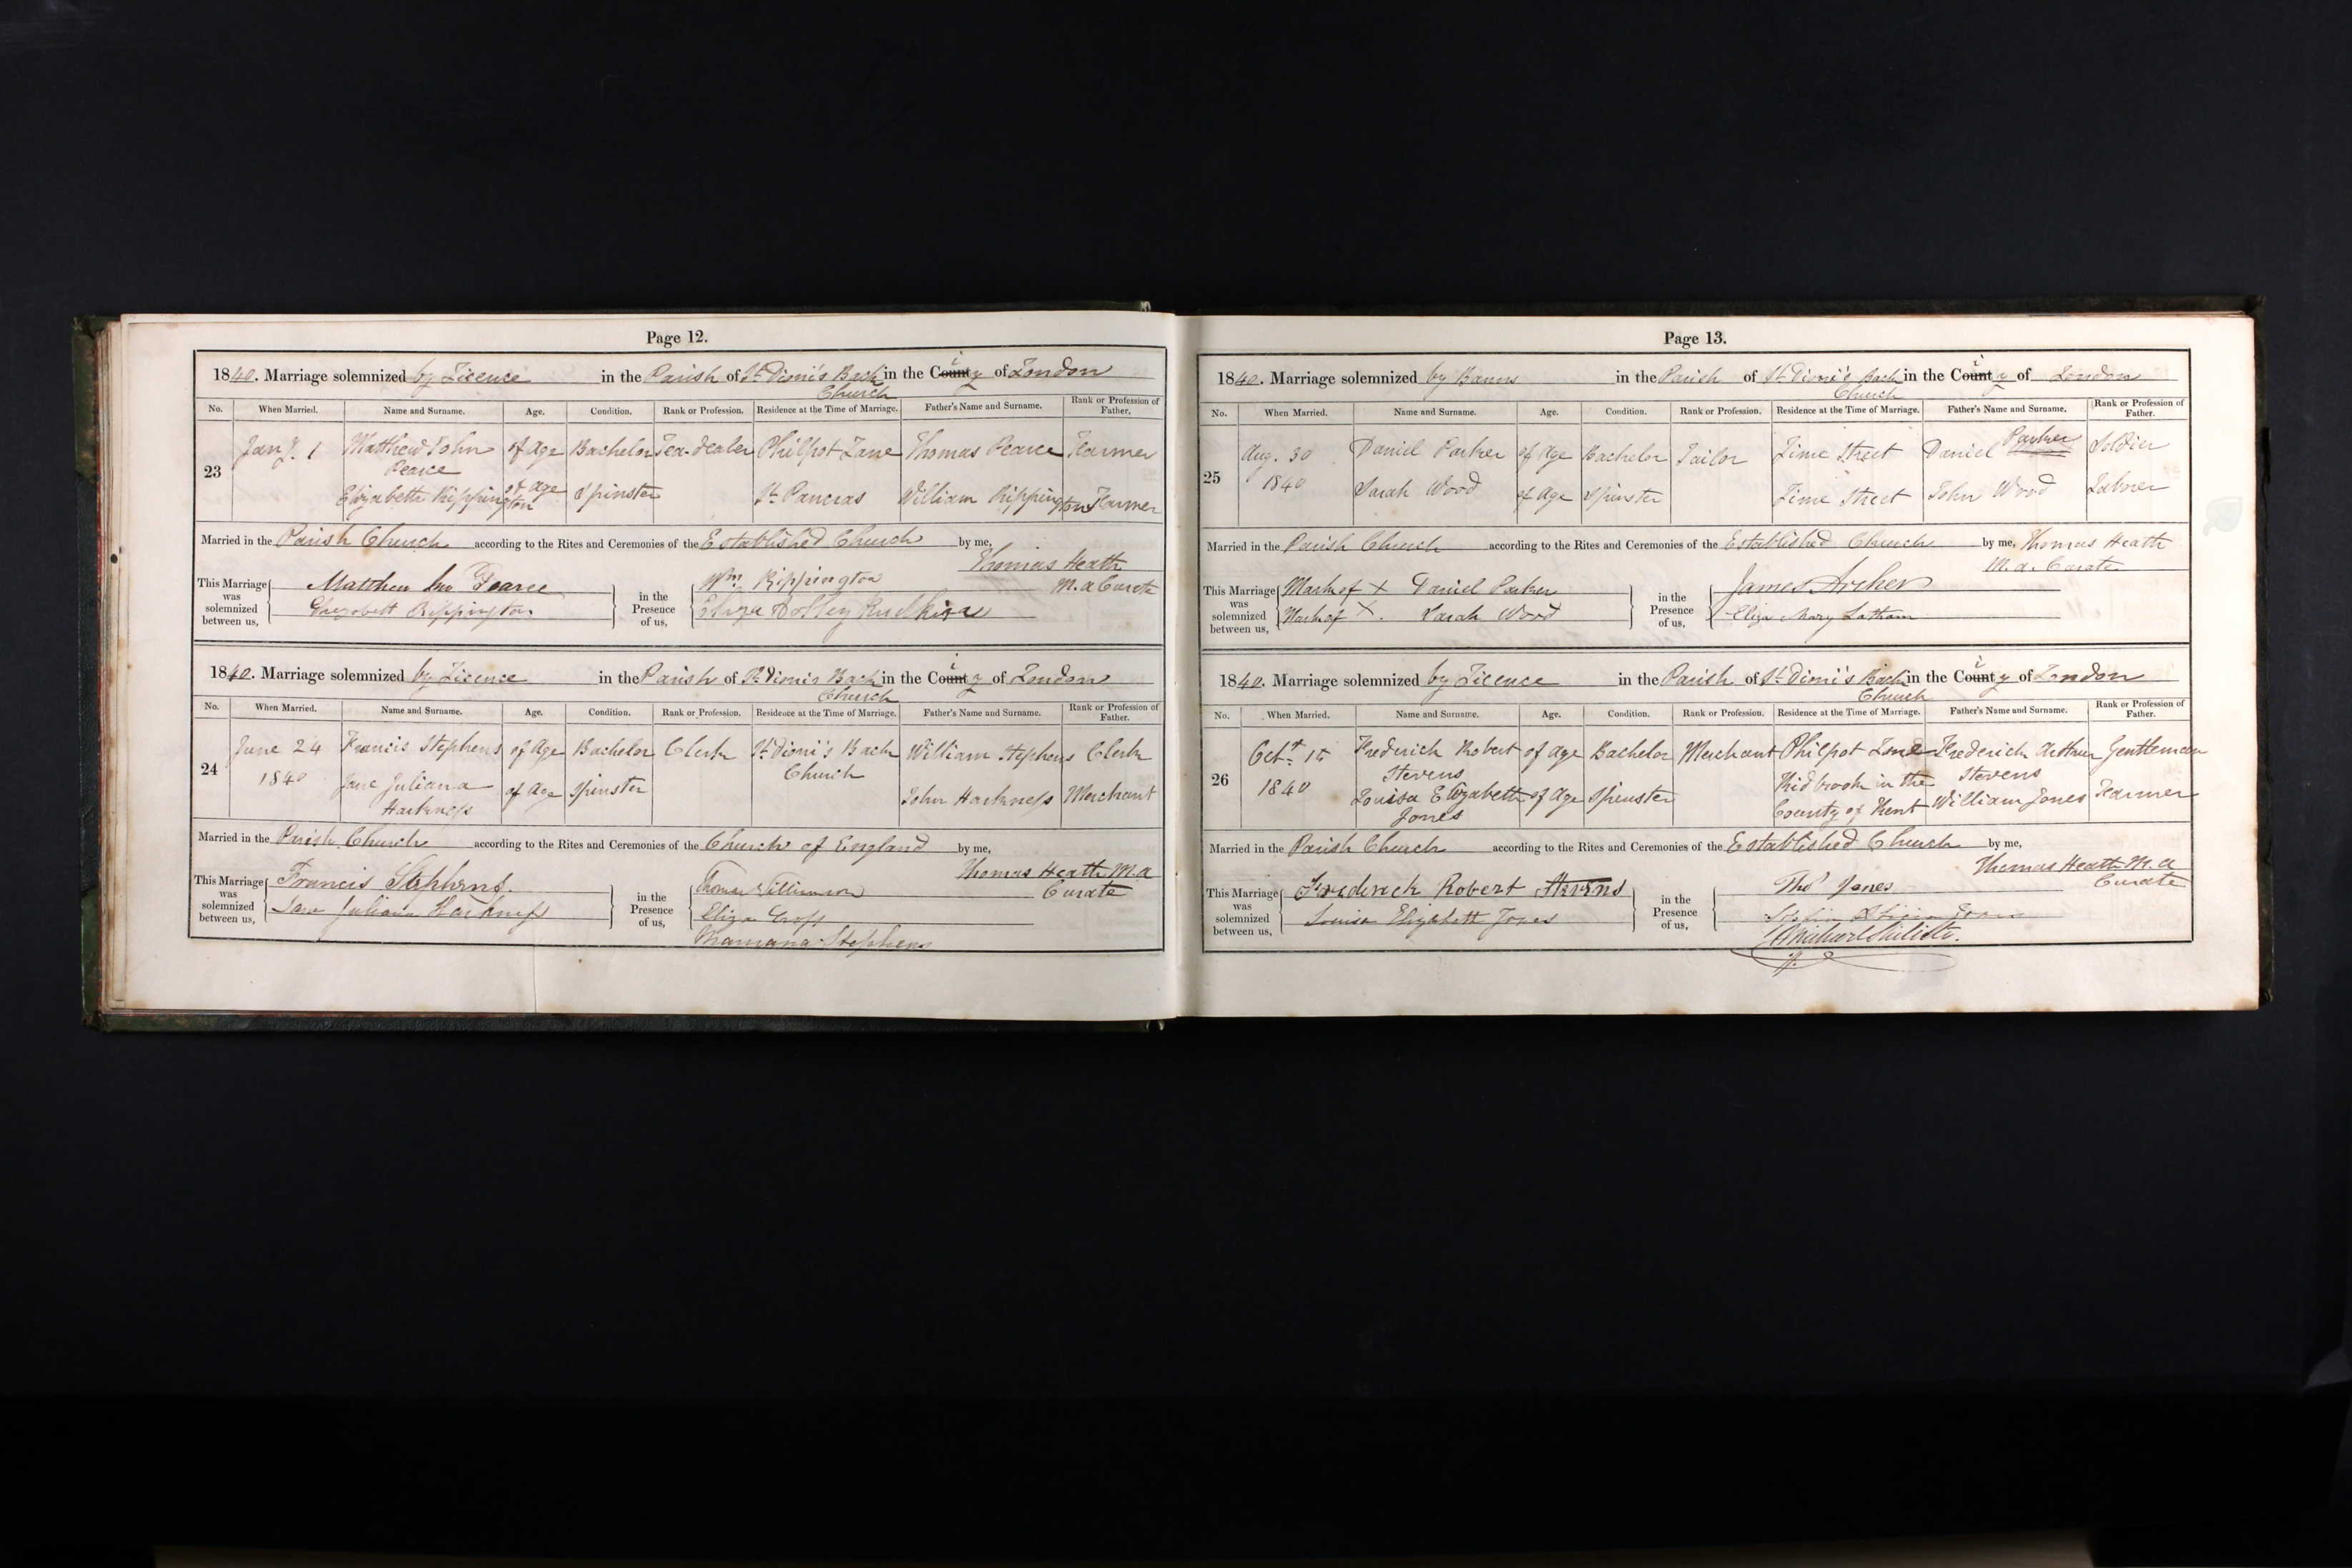 Page 12.
1840. Marriage solemnized by Licence in the Parish of St. Dionis Back Church in the City of London
No. When Married. Name and Surname. Age. Condition. Rank or Profession. Residence at the Time of Marriage. Father's Name and Surname. Rank or Profession of Father.
23 Jany. 1 Matthew John Pearce of Age Bachelor Tea-dealer Philpot Lane Thomas Pearce Farmer
Elizabeth Rippington of age Spinster St. Pancras William Rippington Farmer
Married in the Parish Church according to the Rites and Ceremonies of the Established Church by me,
Thomas Heath
M.A. Curate
This Marriage was solemnized between us, Matthew Jno Pearce
Elizabeth Rippington
in the Presence of us, Wm. Rippington
Eliza Rudkin
1840. Marriage solemnized by Licence in the Parish of St. Dionis Back Church in the City of London
No. When Married. Name and Surname. Age. Condition. Rank or Profession. Residence at the Time of Marriage. Father's Name and Surname. Rank or Profession of Father.
24 June 24 1840 Francis Stephens of Age Bachelor Clerk St. Dioni's Back Church William Stephens Clerk
Jane Juliana Harkness of Age Spinster John Harkness Merchant
Married in the Parish Church according to the Rites and Ceremonies of the Church of England by me,
Thomas Heath M.A
Curate
This Marriage was solemnized between us, Francis Stephens.
Jane Juliana Harkness
in the Presence of us, Thomas Williamson
Eliza Cross
Stephens
Page 13.
1840. Marriage solemnized by Banns in the Parish of St. Dioni's Back Church in the City of London
No. When Married. Name and Surname. Age. Condition. Rank or Profession. Residence at the Time of Marriage. Father's Name and Surname. Rank or Profession of Father.
25 Aug. 30 1840 Daniel Parker of Age Bachelor Tailor Lime Street Daniel Parker Soldier
Sarah Wood of Age Spinster Lime Street John Wood Labrer
Married in the Parish Church according to the Rites and Ceremonies of the Established Church by me, Thomas Heath
M.A. Curate
This Marriage was solemnized between us, Mark of X Daniel Parker
Mark of X. Sarah Wood
in the Presence of us, James Archer
Eliza Mary Latham
1840. Marriage solemnized by Licence in the Parish of St. Dioni's Back Church in the City of London
No. When Married. Name and Surname. Age. Condition. Rank or Profession. Residence at the Time of Marriage. Father's Name and Surname. Rank or Profession of Father.
26 Octr. 15 1840 Frederick Robert Stevens of age Bachelor Merchant Philpot Lane Frederick Arthur Stevens Gentleman
Louisa Elizabeth Jones of Age Spinster Kidbrook in the County of Kent William Jones Farmer
Married in the Parish Church according to the Rites and Ceremonies of the Established Church by me,
Thomas Heath M.A
Curate
This Marriage was solemnized between us, Frederick Robert Stevens
Louisa Elizabeth Jones
in the Presence of us, Thos Jones